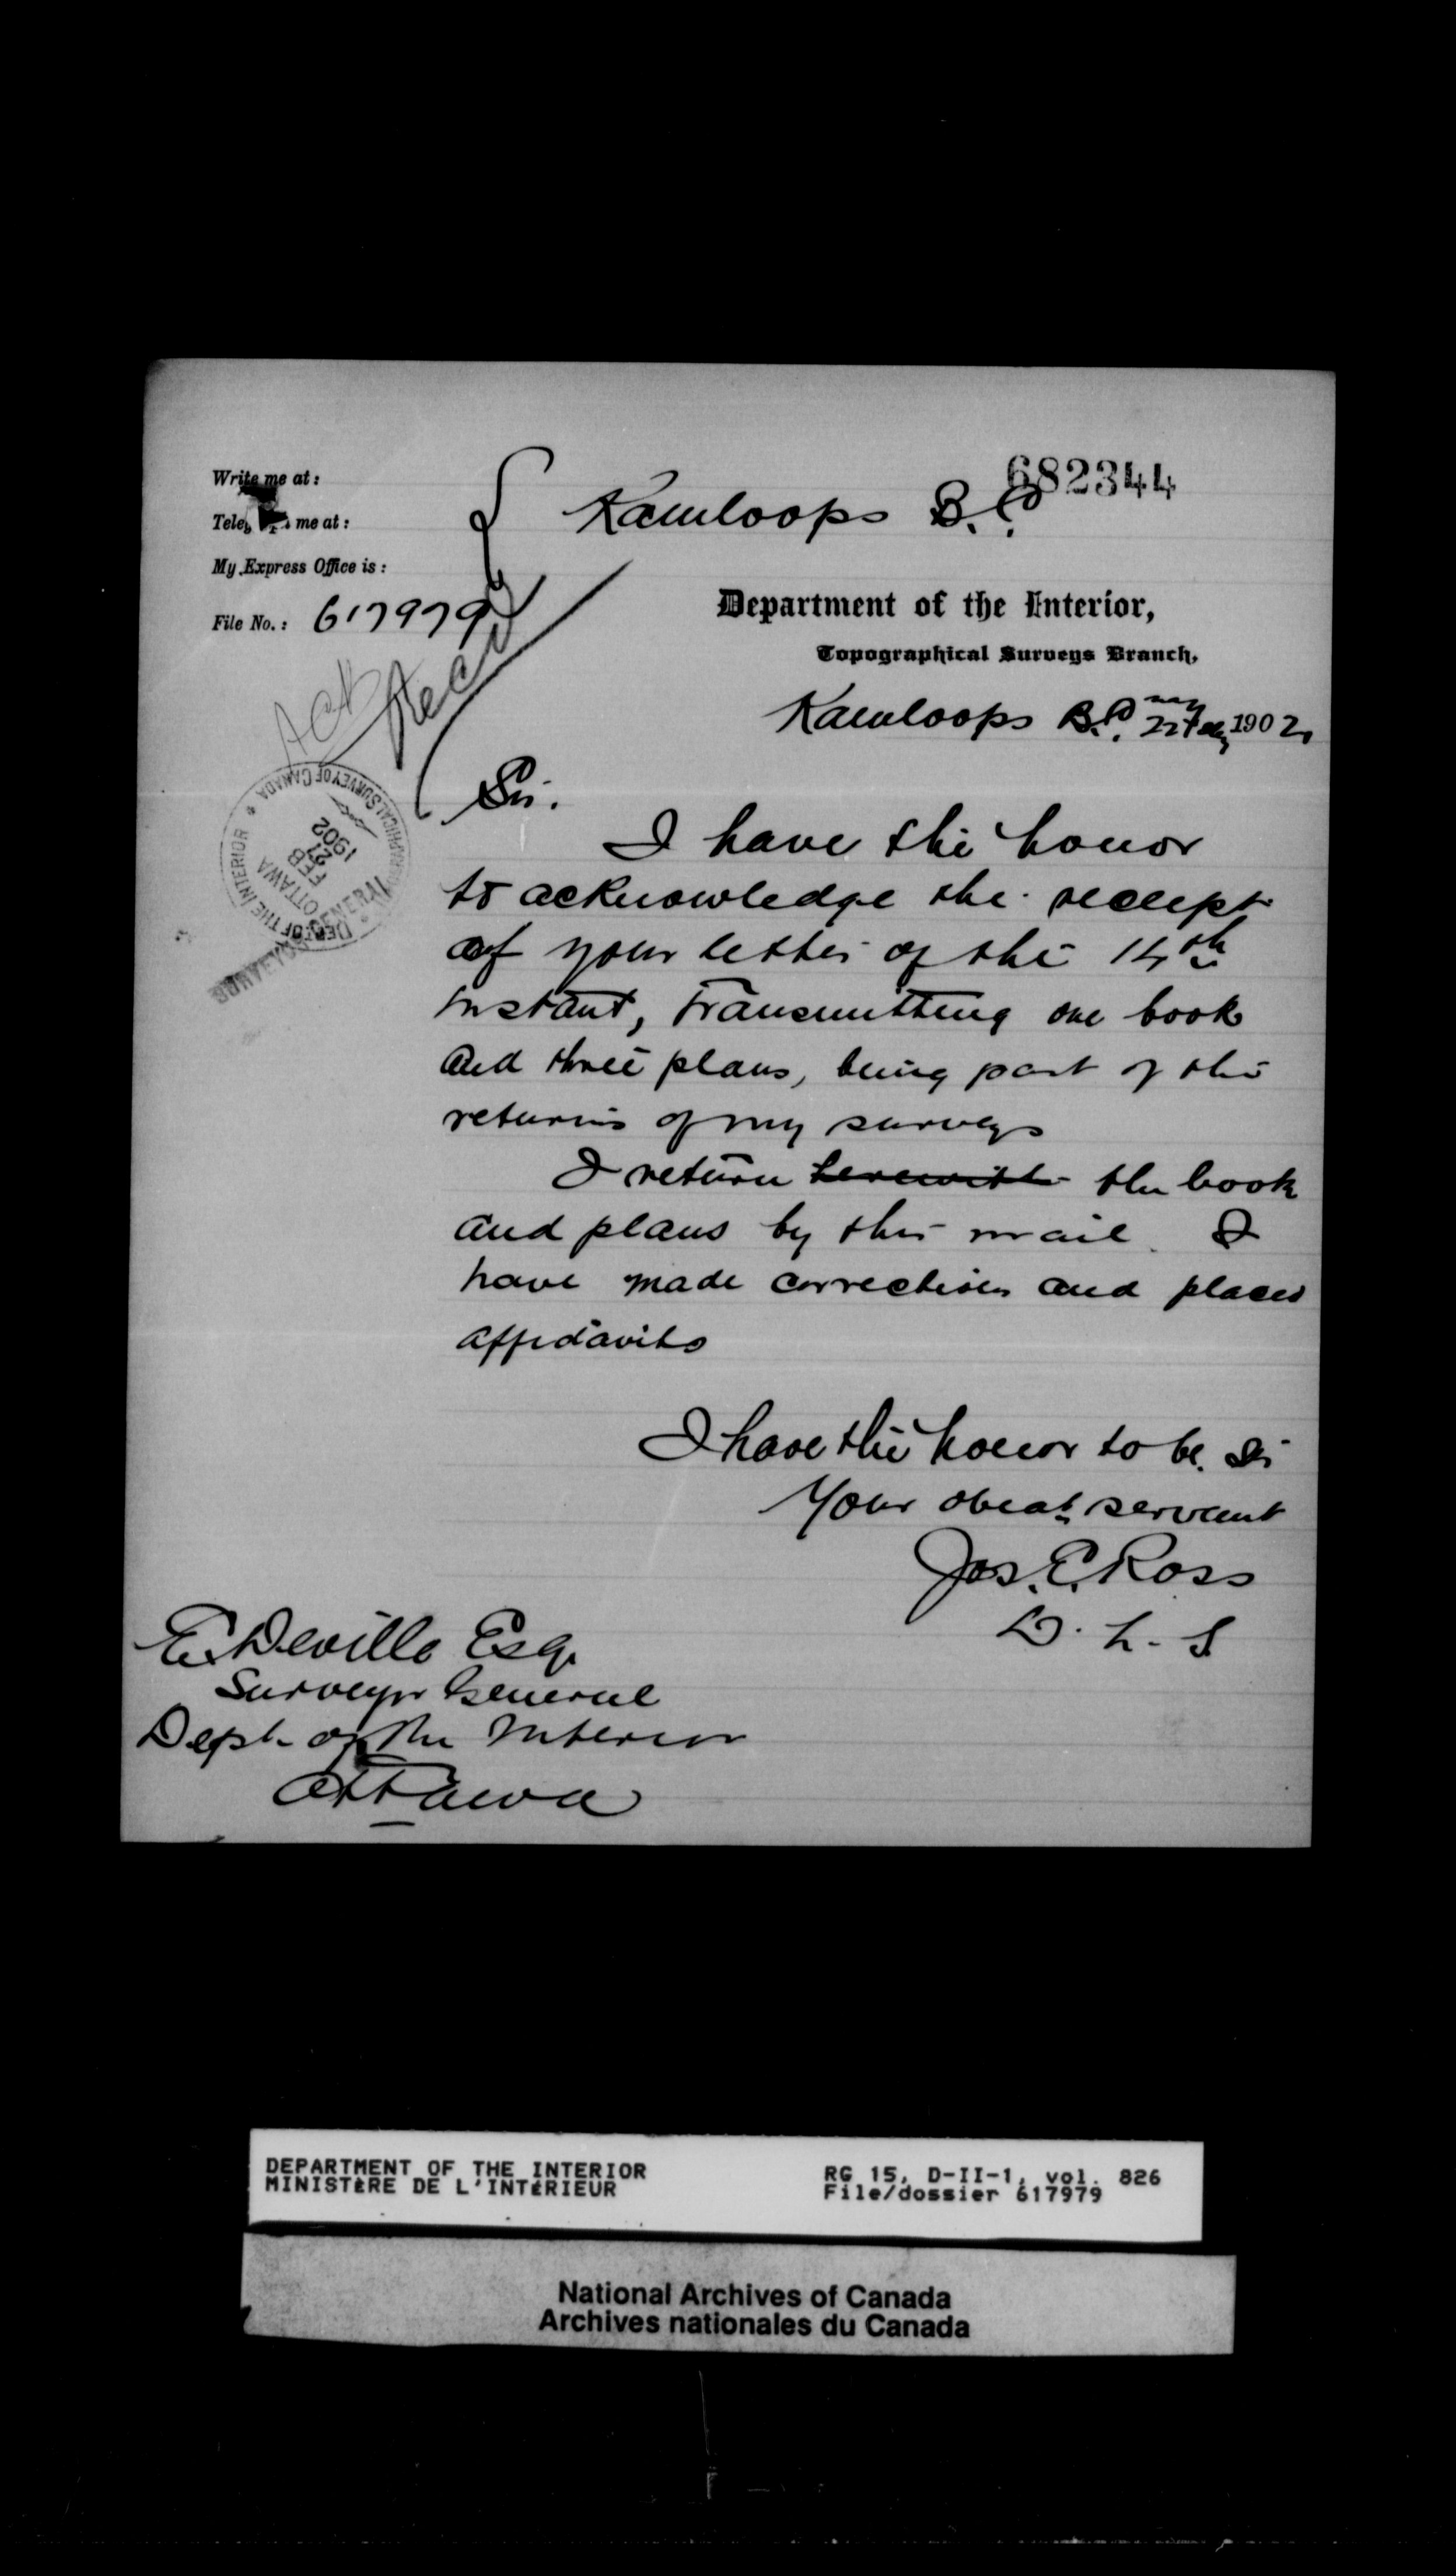 682344
Write me at :
Kamloops B.C.
me at :
My Express Office is :
File No. : 617979
Department of the Interior,
Topographical Surveys Branch,
Kamloops B.C. 22 1902
Ack
Recd
DEPT. OF THE INTERIOR
TOPOGRAPHICAL SURVEY OF CANADA
OTTAWA
FEB
27
1902
SURVEYOR GENERAL
Sir.
I have the honor
to acknowledge the receipt
of your letter of the 14th
instant, transmitting one book
and three plans, being part of the
returns of my surveys
I return herewith the book
and plans by this mail. I
have made corrections and placed
affidavits
I have the honor to be. Sir
Your obedt servant
Jos. E. Ross
D. L. S
E. Deville Esq.
Surveyor General
Dept of the Interior
Ottawa
DEPARTMENT OF THE INTERIOR
MINISTÈRE DE L'INTÉRIEUR
RG 15, D-II-1, vol. 826
File/dossier 617979
National Archives of Canada
Archives nationales du Canada